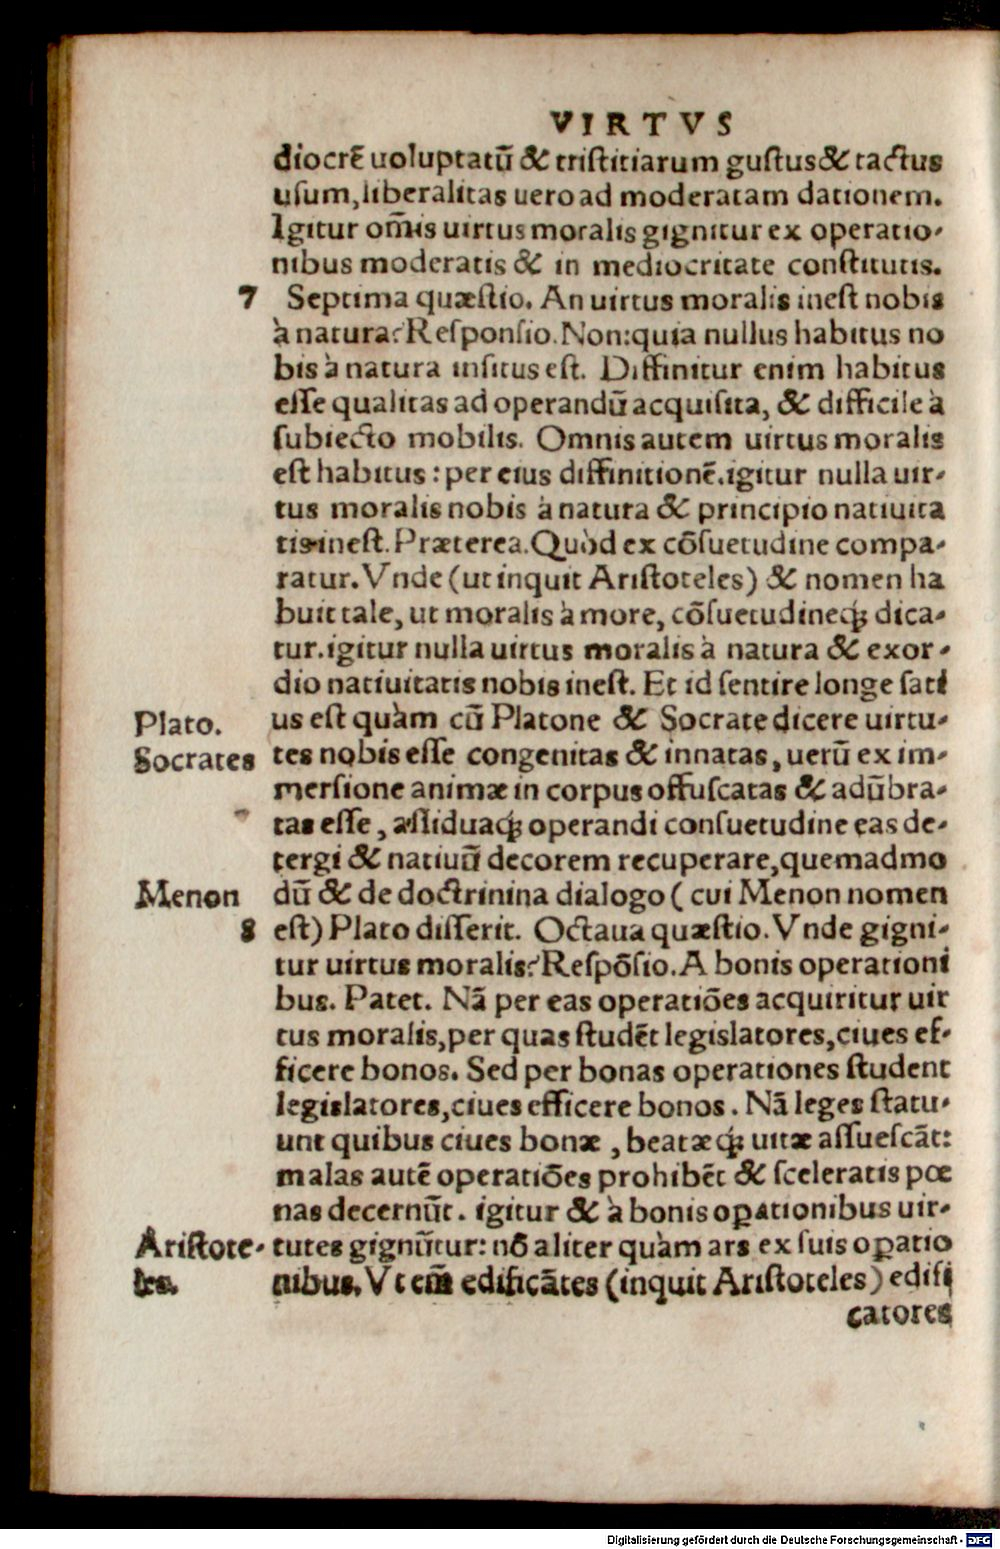 VIRTVS
diocrẽ uoluptatũ & tristitiarum gustus & tactus
usum, liberalitas uero ad moderatam dationem.
Igitur om̃is uirtus moralis gignitur ex operatio-
nibus moderatis & in mediocritate constitutis.
7 Septima quæstio. An uirtus moralis inest nobis
à natura? Responsio. Non: quia nullus habitus no
bis à natura insitus est. Diffinitur enim habitus
esse qualitas ad operandũ acquisita, & difficile à
subiecto mobilis. Omnis autem uirtus moralis
est habitus: per eius diffinitionẽ. igitur nulla uir-
tus moralis nobis à natura & principio natiuita
tis inest. Præterea. Quòd ex cõsuetudine compa-
ratur. Vnde (ut inquit Aristoteles) & nomen ha
buit tale, ut moralis à more, cõsuetudineq́; dica-
tur. igitur nulla uirtus moralis à natura & exor-
dio natiuitatis nobis inest. Et id sentire longe sati
Plato. us est quàm cũ Platone & Socrate dicere uirtu-
Socrates tes nobis esse congenitas & innatas, uerũ ex im-
mersione animæ in corpus offuscatas & adũbra-
tas esse, assiduaq́; operandi consuetudine eas de-
tergi & natiuũ decorem recuperare, quemadmo
Menon dũ & de doctrinina dialogo (cui Menon nomen
8 est) Plato disserit. Octaua quæstio. Vnde gigni-
tur uirtus moralis? Respõsio. A bonis operationi
bus. Patet. Nã per eas operatiões acquiritur uir
tus moralis, per quas studẽt legislatores, ciues ef-
ficere bonos. Sed per bonas operationes student
legislatores, ciues efficere bonos. Nã leges statu-
unt quibus ciues bonæ, beatæq́; uitæ assuescãt:
malas autẽ operatiões prohibẽt & sceleratis pœ
nas decernũt. igitur & à bonis oꝑationibus uir-
Aristote- tutes gignũtur: nõ aliter quàm ars ex suis oꝑatio
les. nibus. Vt em̃ edificãtes (inquit Aristoteles) edifi
catores
Digitalisierung gefördert durch die Deutsche Forschungsgemeinschaft - DFG